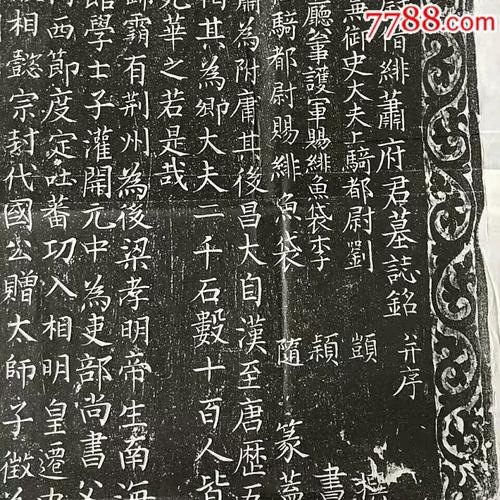 7788.com
借緋蕭府君墓誌銘 并序
御史大夫上騎都尉劉 顗
事護軍賜緋魚袋李 穎 書
騎都尉賜緋魚袋 隨 篆蓋
蕭為附庸其後昌大自漢至唐歷五
其為鄉大夫二千石數十百人皆
華之若是哉
霸有荊州為後梁孝明帝生南海
館學士子灌開元中為吏部尚書父
西節度定吐蕃功入相明皇遷
相懿宗封代國公贈太師子徵